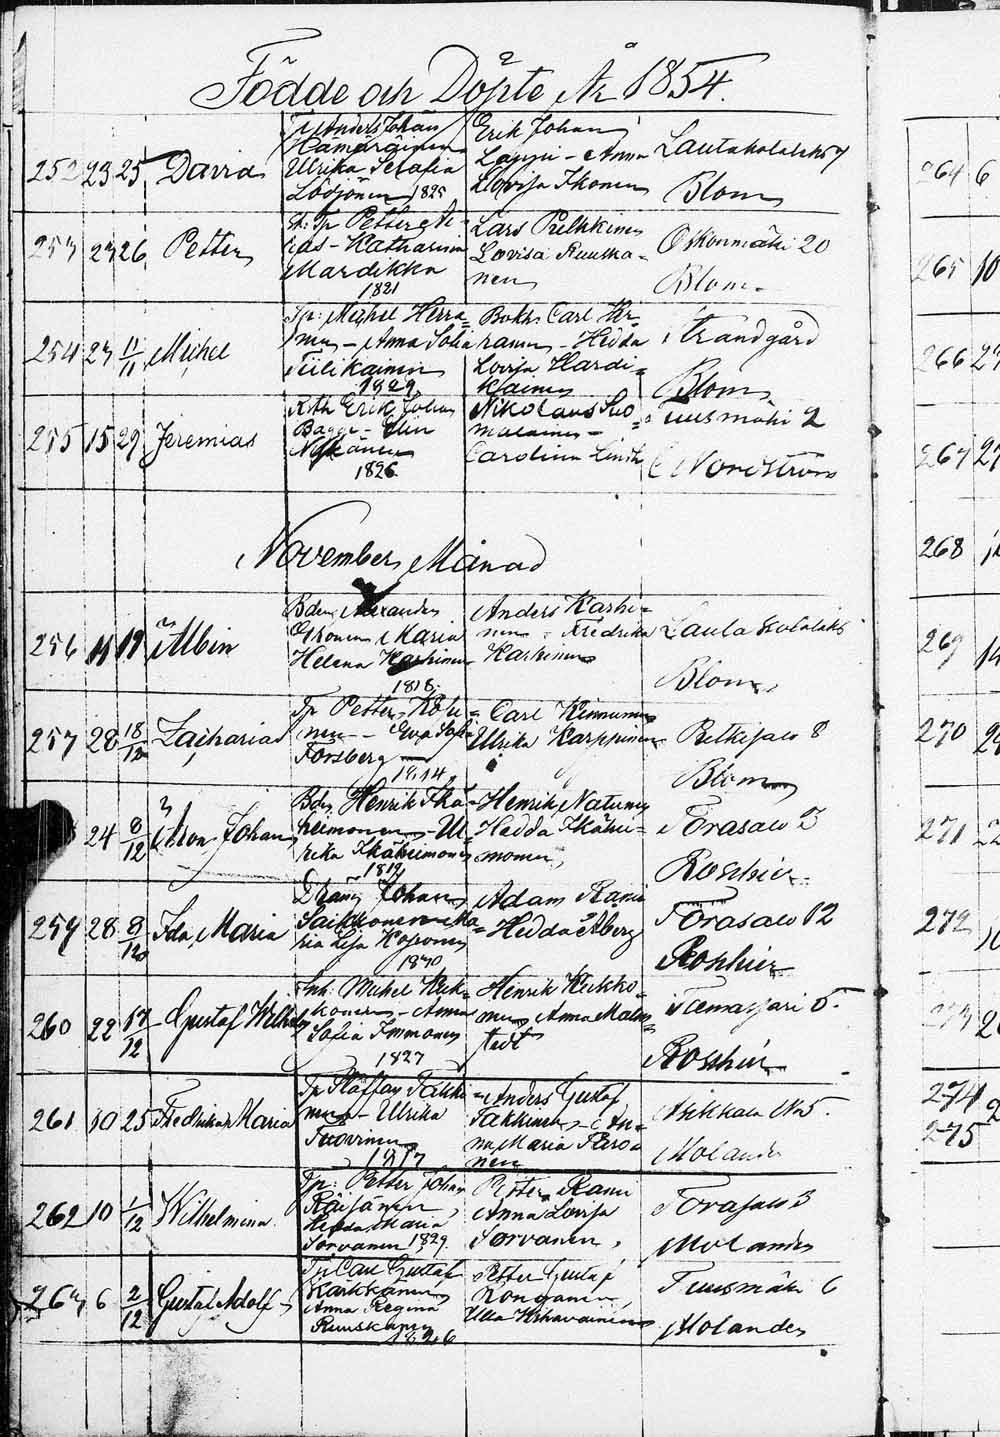 Födde och Döpte År 1854.
252 23 25 David
Tp Anders Johan
Hämäräinen
Ulrika Serafia
1825
Erik Johan
Lappi - Anna
Lovisa Ikonen
Lautakotalaks 7
Blom
253 23 26 Petter
Katharina
Mardikka
1821
Lars Pulkkinen
Lovisa Ruuska=
nen
Oskonmäki 20
Blom
254 23 11/11 Michel
Tp: Michel Herra=
nen - Anna Sofia
Tiilikainen
1829
Carl Her=
ranen - Hedda
Lovisa Hardi=
kainen
Strandgård
Blom
255 15 29 Jeremias
Erik Johan
Bagge - Elin
Nykänen
1826
Nikolaus Suo=
malainen -
Carolina Lindh
Tuusmäki 2
C Nordström
November Månad
256 11 19 Albin
Bden Alexander
Ikonen Maria
Helena Karhinen
1818
Anders Karhi=
nen - Fredrika
Karhinen
Lautakotalaks
Blom
257 28 18/12 Zacharias
Tp Petter
nen - Eva Sofia
Forsberg
1814
Carl Kinnunen
Ulrika Karppinen
8
Blom
24 8/12 Aron Johan
Bden Henrik Ikä=
heimonen - Ul=
rika Ikäheimonen
1819
Henrik
Hedda Ikähei=
monen
Torasalo 3
Roschier
259 28 8/12 Ida Maria
Dräng Johan
Saikkonen Ma=
ria Lisa Koponen
1830
Adam
Hedda Åberg
Torasalo 12
Roschier
260 22 17/12 Gustaf Wilhelm
Inh: Michel Kuk=
konen - Anna
Sofia Immonen
1827
Henrik Kukko=
nen Anna Malm=
stedt
5
Roschier
261 10 25 Fredrika Maria
Tp Staffan Takki
nen - Ulrika
Tuovinen
1817
Anders Gustaf
Takkinen - An=
na Maria
nen
Asikkala No 5.
Molander
262 10 1/12 Wilhelmina
Tp: Petter Johan
Räisänen
Hedda Maria
Sorvanen 1829.
Petter
Anna Lovisa
Sorvanen
Torasalo 3
Molander
263 6 2/12 Gustaf Adolf
Tp Carl Gustaf
Karkkänen
Anna Regina
Ruuskanen
1826
Petter Gustaf
Ronganen
Ulla
Tuusmäki 6
Molander
264 6
265 10
266 27
267 27
268
269 14
270 29
271 22
272
273 20
274 2
275